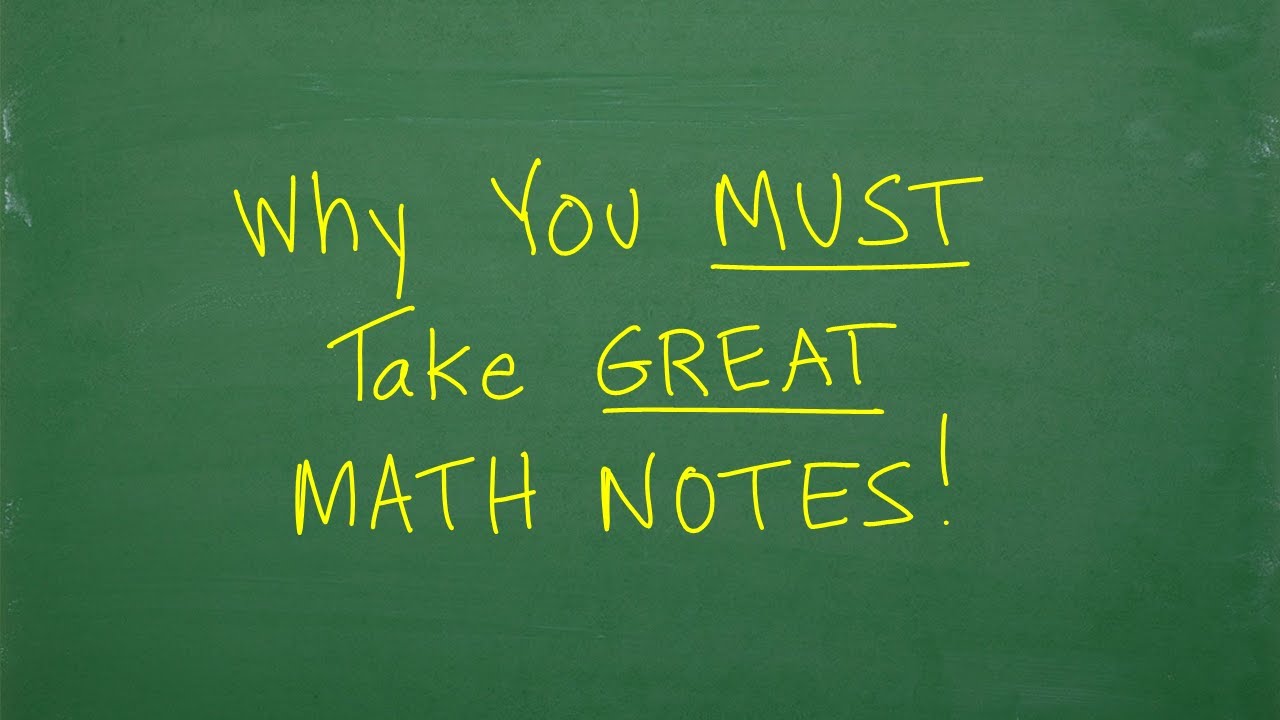 Why You MUST
Take GREAT
MATH NOTES!